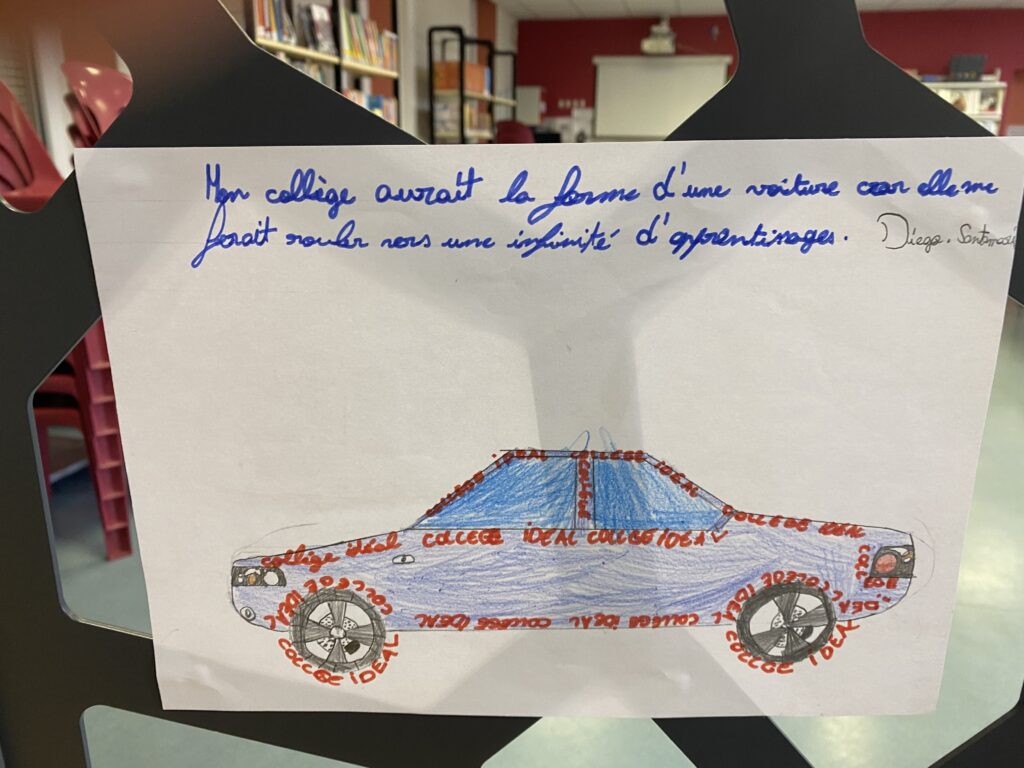 Mon collège aurait la forme d'une voiture car elle me
ferait rouler vers une infinité d'apprentissages. Diego.
COLLEGE IDEAL COLLEGE IDEAL
COLLEGE
collège idéal COLLEGE IDEAL COLLEGE IDEAL COLLEGE IDEAL
COLLEGE IDEAL COLLEGE IDEAL COLLEGE IDEAL COLLEGE IDEAL
COLLEGE IDEAL COLLEGE IDEAL